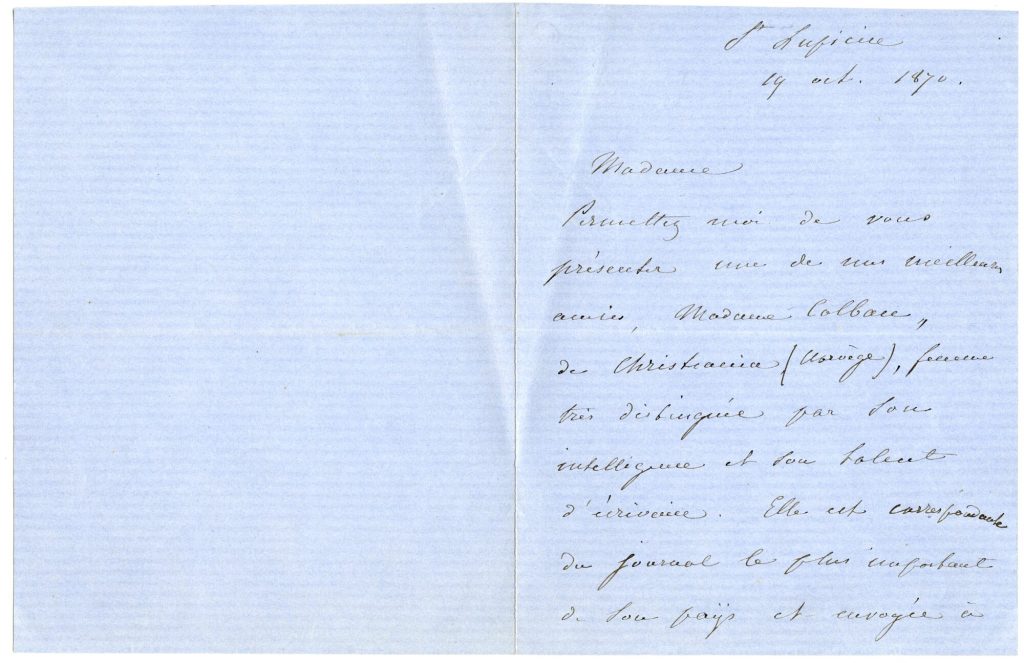 St Lupicin
19 oct. 1870.
Madame
Permettez moi de vous
présenter une de nos meilleures
amies, Madame Colban,
de Christiania (Norvège), femme
très distinguée par son
intelligence et son talent
d'écrivain. Elle est correspondante
du journal le plus important
de son païjs et envoyée à